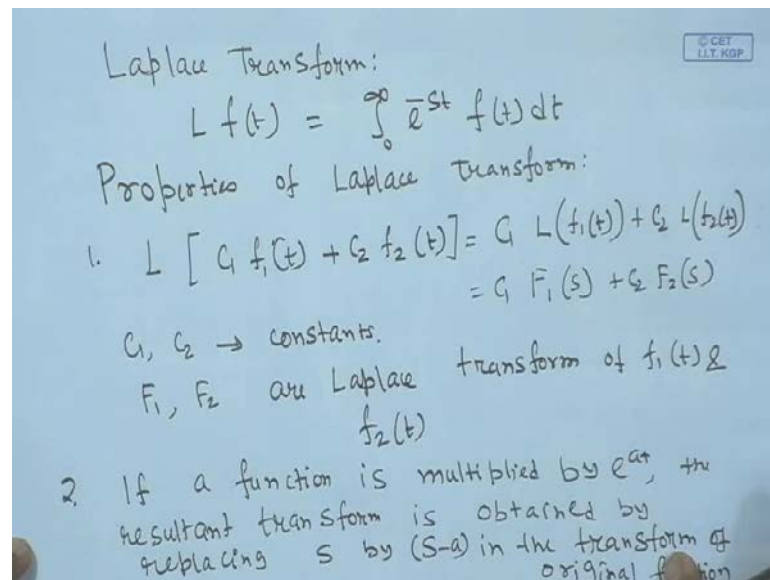 © CET
I.I.T. KGP
Laplace Transform:
L f(t) = ∫₀^∞ e^-st f(t) dt
Properties of Laplace transform:
1. L [ C₁ f₁(t) + C₂ f₂(t) ] = C₁ L(f₁(t)) + C₂ L(f₂(t))
= C₁ F₁(s) + C₂ F₂(s)
C₁, C₂ → constants.
F₁, F₂ are Laplace transform of f₁(t) &
f₂(t)
2. If a function is multiplied by e^at, the
resultant transform is obtained by
replacing s by (s-a) in the transform of
original